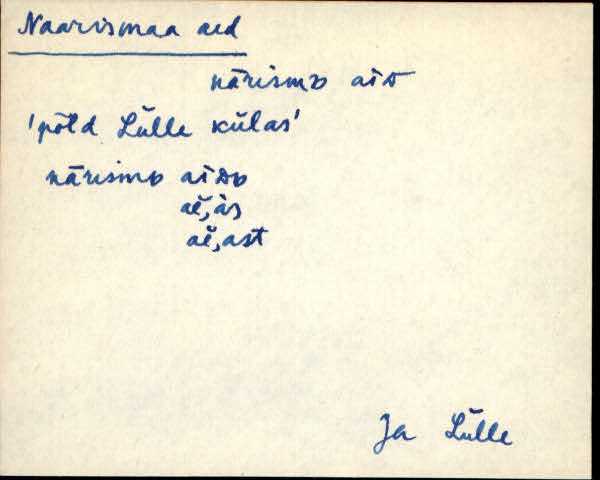 Naarismaa aed
nārismɒ aiᴅ
'põld Lülle külas'
nārismɒ aiᴅɒ
aĕ,às
aĕ,ast
Ja Lülle